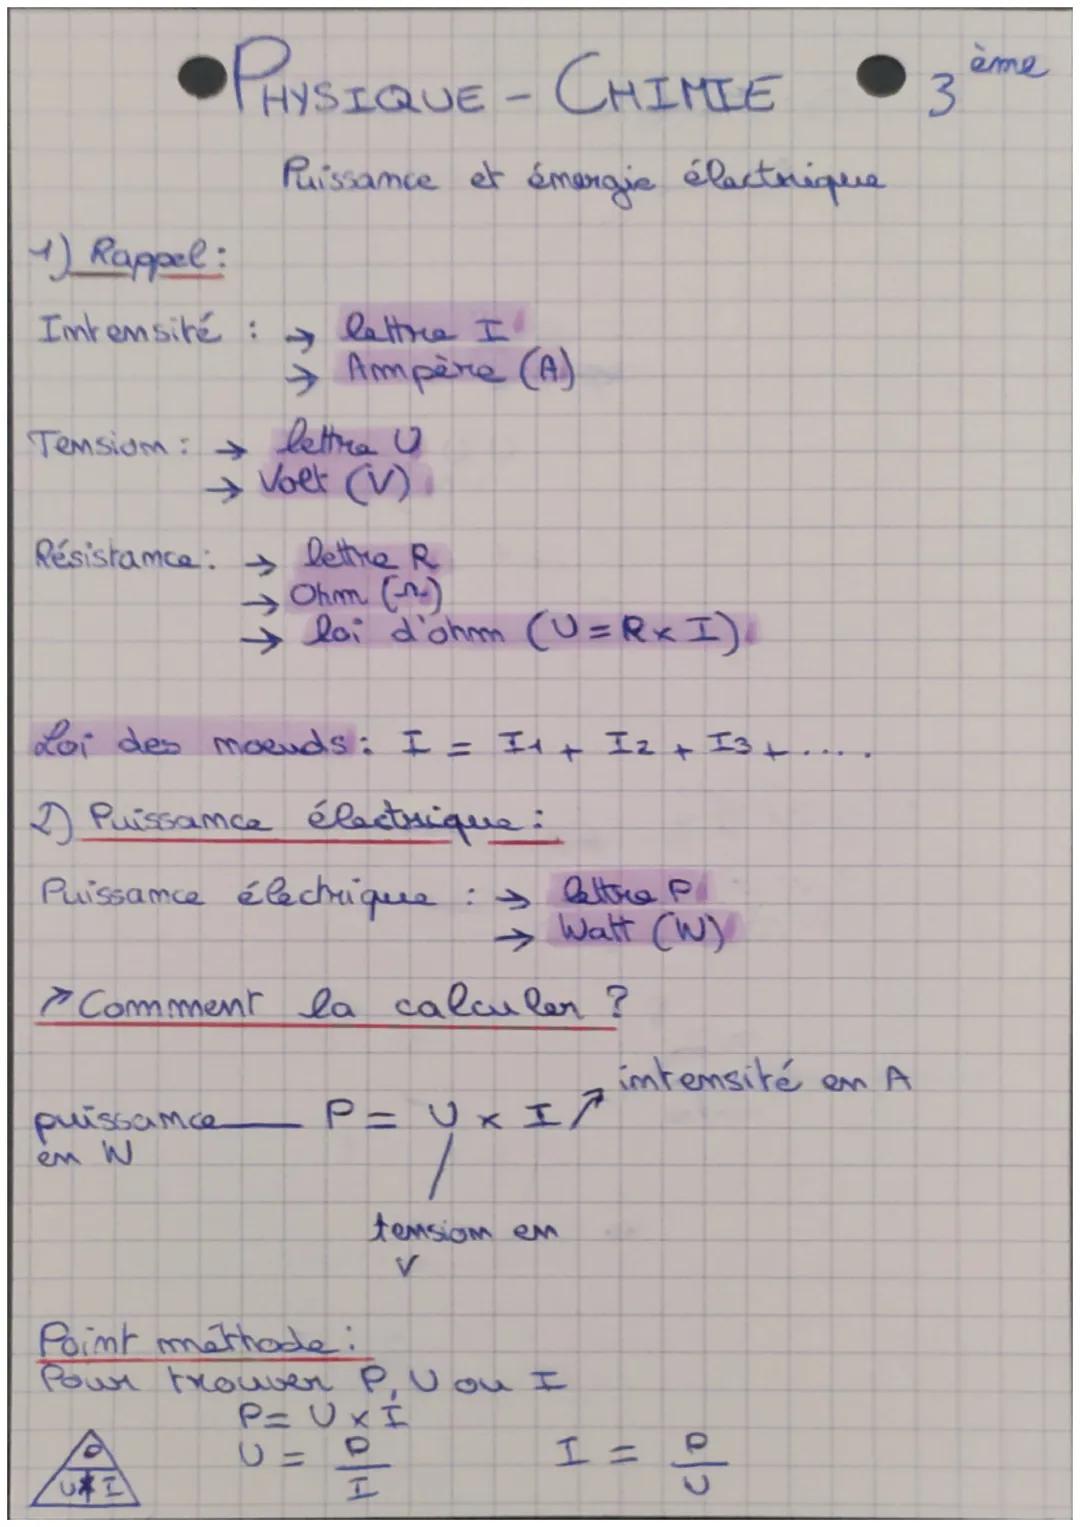 PHYSIQUE - CHIMIE 3ème
Puissance et énergie électrique
1) Rappel :
Intensité : → lettre I
→ Ampère (A)
Tension : → lettre U
→ Volt (V)
Résistance : → lettre R
→ Ohm (Ω)
→ loi d'ohm (U = R x I)
Loi des noeuds : I = I1 + I2 + I3 + ....
2) Puissance électrique :
Puissance électrique : → lettre P
→ Watt (W)
↗ Comment la calculer ?
intensité en A
puissance — P = U x I ↗
en W
tension en
V
Point méthode :
Pour trouver P, U ou I
P = U x I
U = P/I I = P/U
P
U * I